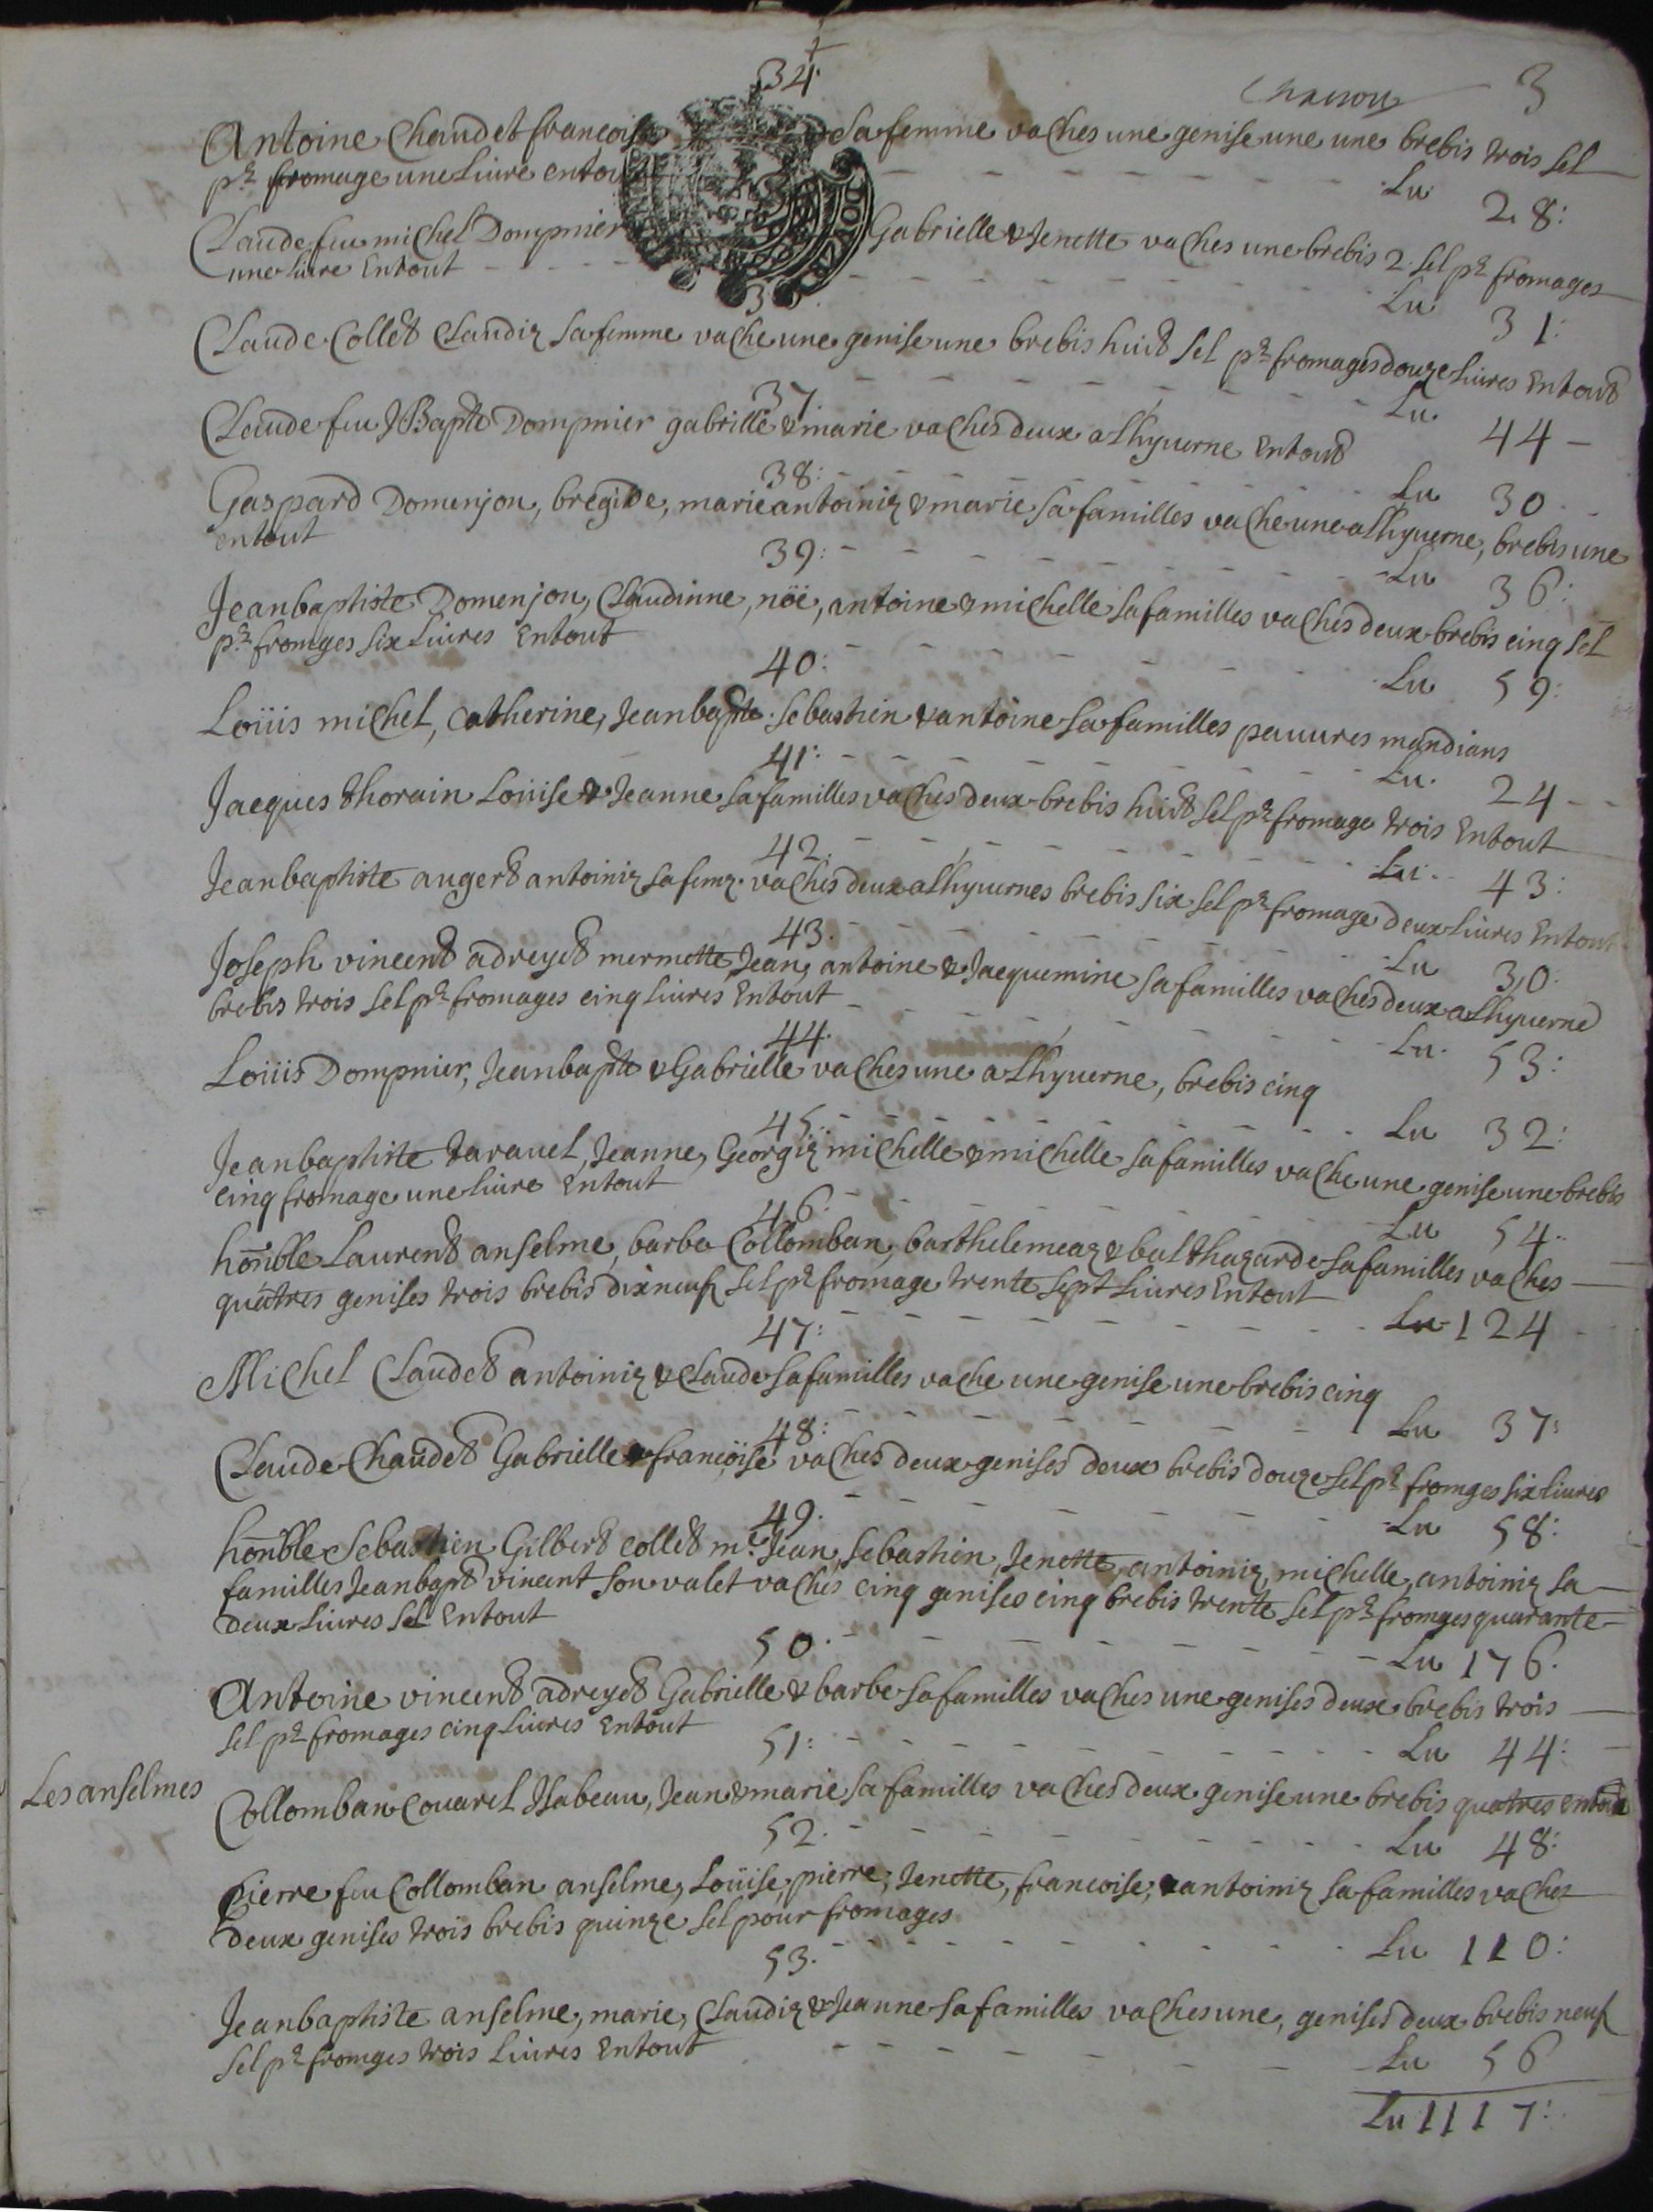 34
3
Antoine Chaudet francoise sa femme vaches une genise une une brebis trois sel
pr fromage une Liure entout
Lu 28:
Claude feu michel Dompnier Gabrielle & Jenette vaches une brebis 2 sel pr fromages
une liure Entout
Lu 31:
Claude Collet Claudiz sa femme vache une genise une brebis huit sel pr fromages douze liures Entout
Lu 44
37.
Claude feu J Bapte Dompnier gabrille & marie vaches deux a Lhyuerne Entout
Lu 30
38:
Gaspard Domenjon, bregide, marie antoiniz & marie sa familles vache une a Lhyuerne, brebis une
entout
Lu 36:
39:
Jeanbaptiste Domenjon, Claudinne, nöé, antoine & michelle sa familles vaches deux brebis cinq sel
pr fromges six Liures Entout
Lu 59:
40:
Loüis michel, Catherine, Jeanbapte sebastien & antoine sa familles pauures mandians
Lu 24
41:
Jacques thorain Loüise & Jeanne sa familles vaches deux brebis huit sel pr fromage trois Entout
Lu 43:
42.
Jeanbaptiste angert antoiniz sa feme vaches deux a Lhyuernes brebis six sel pr fromage deux liures Entout
Lu 30:
43.
Joseph vincent adreyet mermette Jean, antoine & Jacquemine sa familles vaches deux a Lhyuerne
brebis trois sel pr fromages cinq liures Entout
Lu 53:
44.
Loüis Dompnier, Jeanbapte & Gabrielle vaches une a Lhyuerne, brebis cinq
Lu 32:
45.
Jeanbaptiste tarauel, Jeanne, Georgiz michelle & michelle sa familles vache une genise une brebis
cinq fromage une liure Entout
Lu 54
46:
honnble Laurent anselme, barbe Collomban, barthelemeaz & balthazarde sa familles vaches
quatres genises trois brebis dixneuf sel pr fromage trente sept Liures Entout
Lu 124
47:
Michel Claudet antoiniz & Claude sa familles vache une genise une brebis cinq
Lu 37:
48:
Claude Chaudet Gabrielle & francoise vaches deux genises deux brebis douze sel pr fromges six liures
Lu 58:
49.
honnble Sebastien Gilbert collet me Jean, Sebastien, Jenette, antoiniz, michelle, antoiniz sa
familles Jeanbapt vincent son valet vaches cinq genises cinq brebis trente sel pr fromges quarante
deux Liures sel Entout
Lu 176.
50.
Antoine vincent adreyet Gabrielle & barbe sa familles vaches une genises deux brebis trois
sel pr fromages cinq liures Entout
Lu 44:
51:
Les anselmes
Collomban Couarel Isabeau, Jean & marie sa familles vaches deux genise une brebis quatres entout
Lu 48:
52.
Pierre feu Collomban anselme, Loüise, pierre, Jenette, francoise, & antoiniz sa familles vaches
deux genises trois brebis quinze sel pour fromages
Lu 110:
53.
Jeanbaptiste anselme, marie, Claudiz & Jeanne sa familles vaches une, genises deux brebis neuf
sel pr fromges trois Liures Entout
Lu 56
Lu 1117: